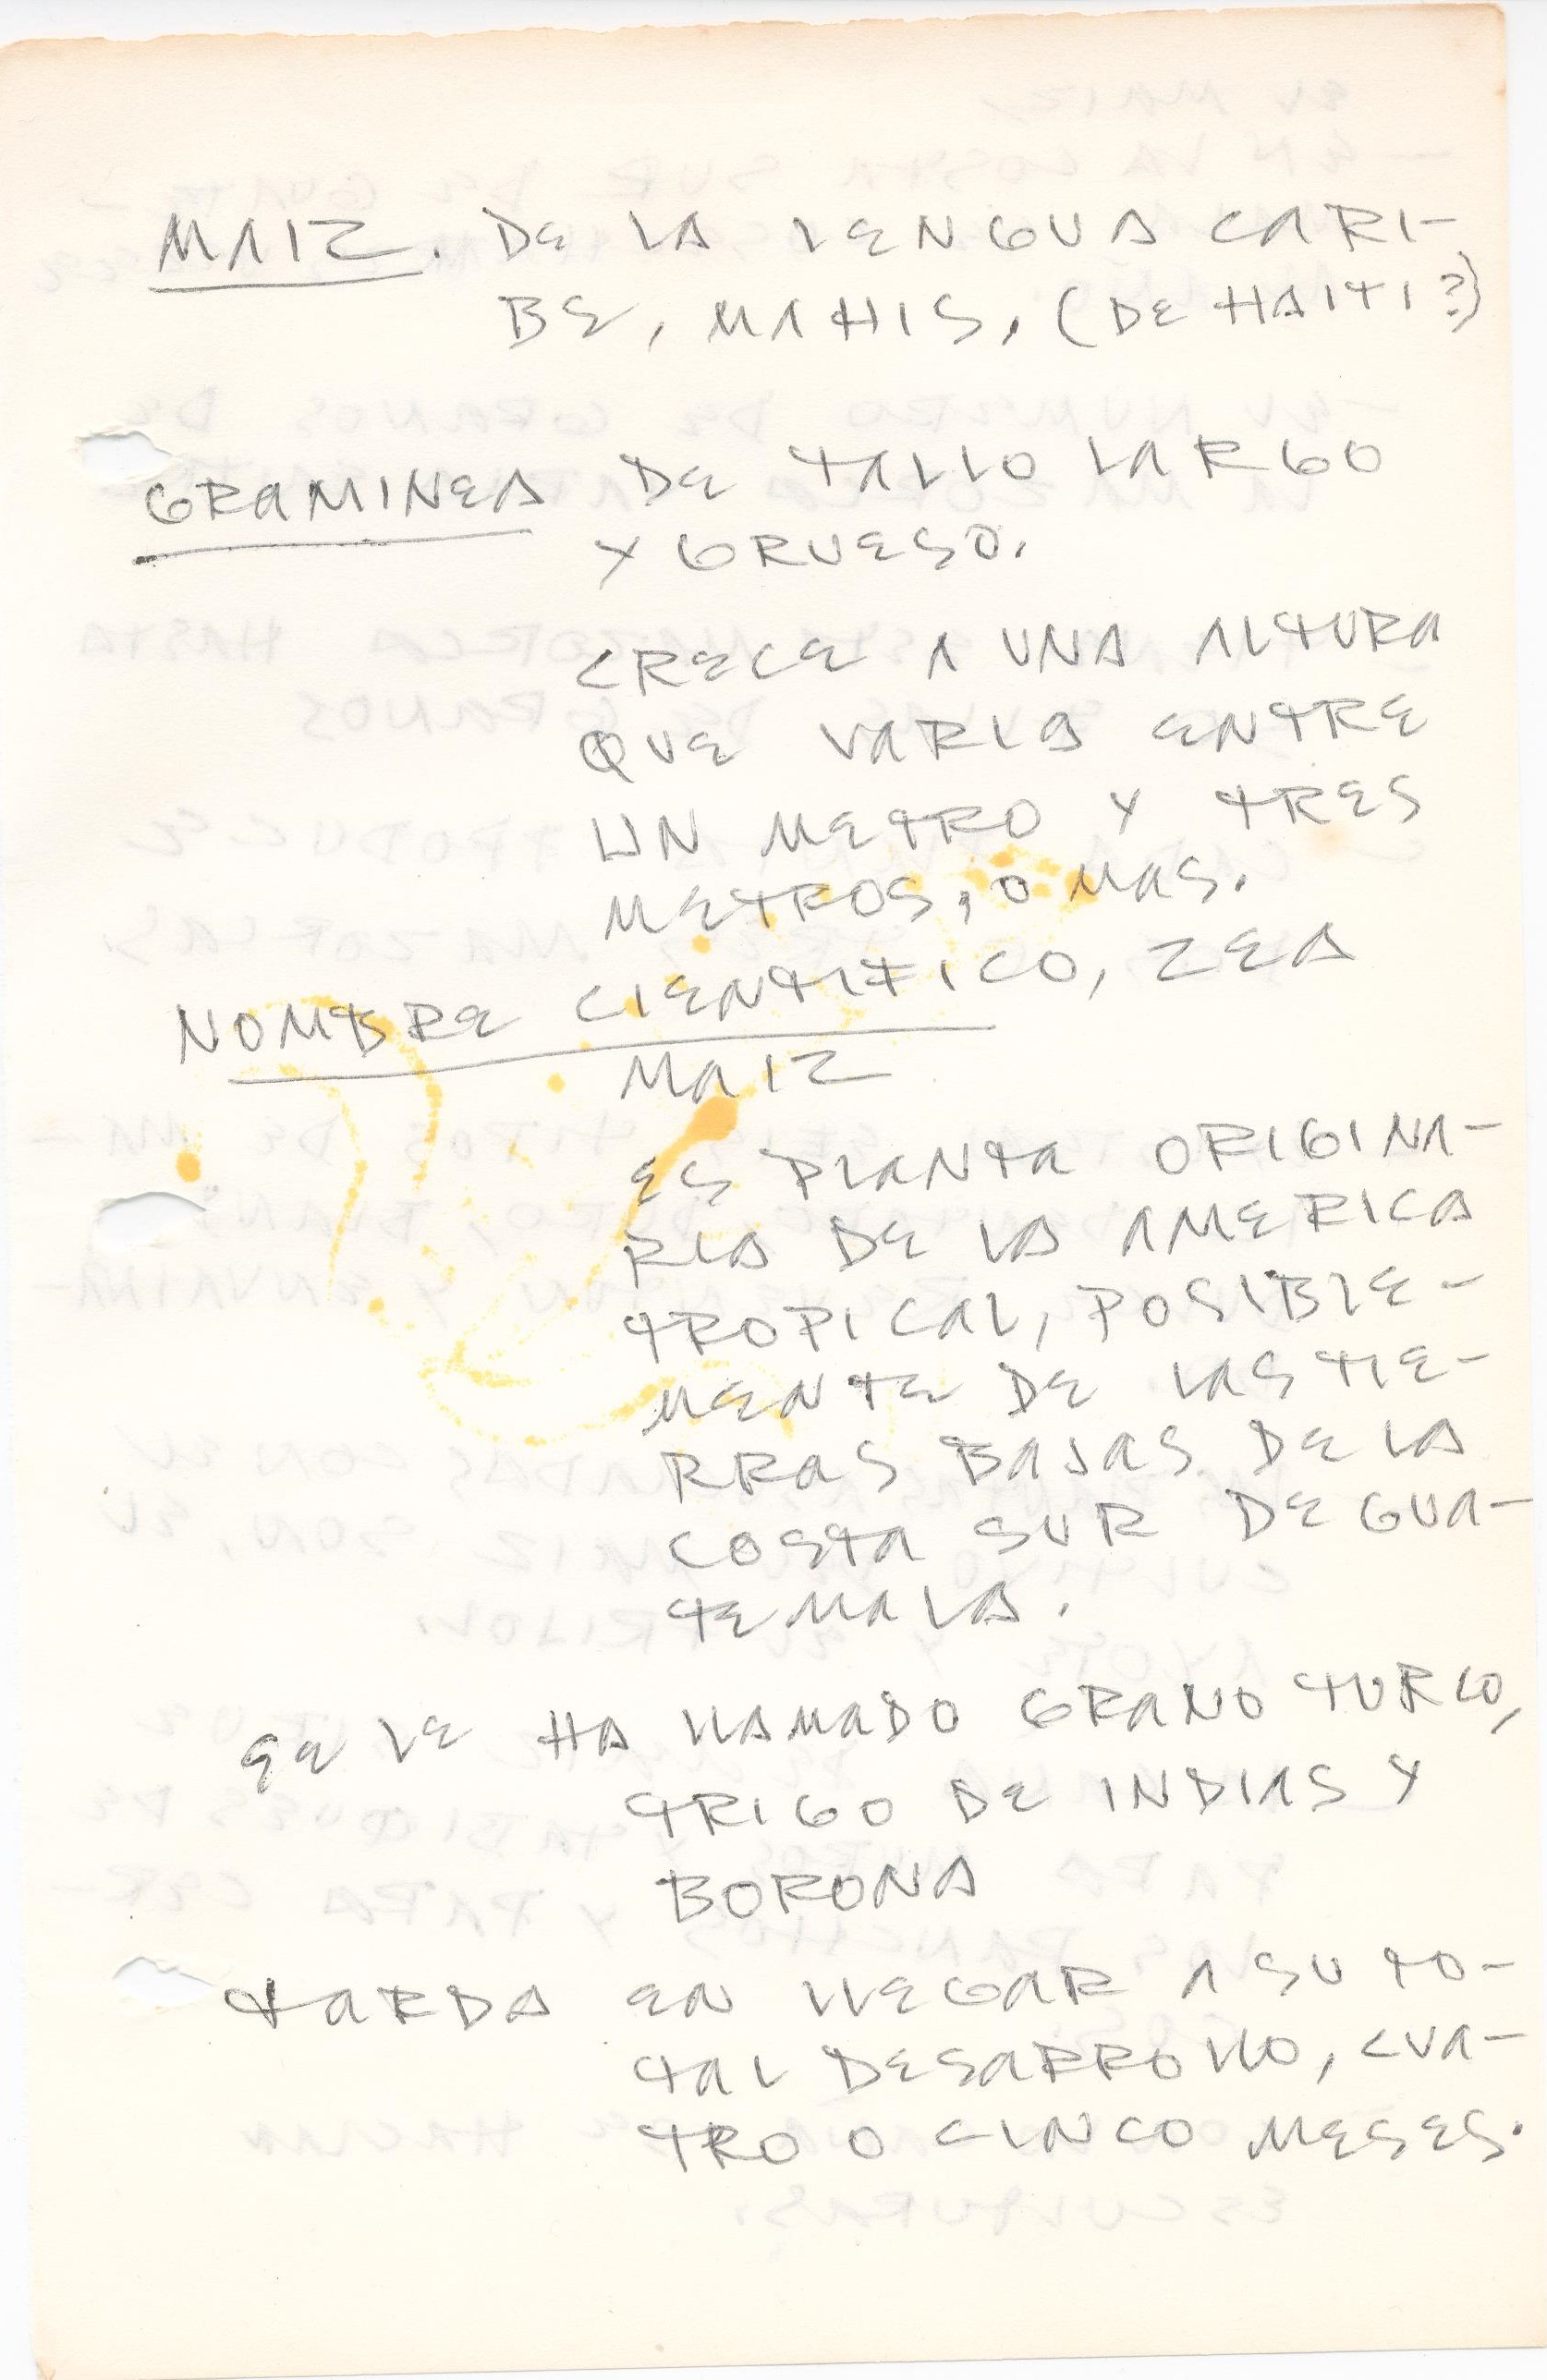 MAIZ. DE LA LENGUA CARI-
BE, MAHIS, (DE HAITI?)
GRAMINEA DE TALLO LARGO
Y GRUESO.
CRECE A UNA ALTURA
QUE VARIA ENTRE
UN METRO Y TRES
METROS, O MAS.
NOMBRE CIENTIFICO, ZEA
MAIZ
ES PLANTA ORIGINA-
RIA DE LA AMERICA
TROPICAL, POSIBLE-
MENTE DE LAS TIE-
RRAS BAJAS DE LA
COSTA SUR DE GUA-
TEMALA.
SE LE HA LLAMADO GRANO TURCO,
TRIGO DE INDIAS Y
BORONA
TARDA EN LLEGAR A SU TO-
TAL DESARROLLO, CUA-
TRO O CINCO MESES.